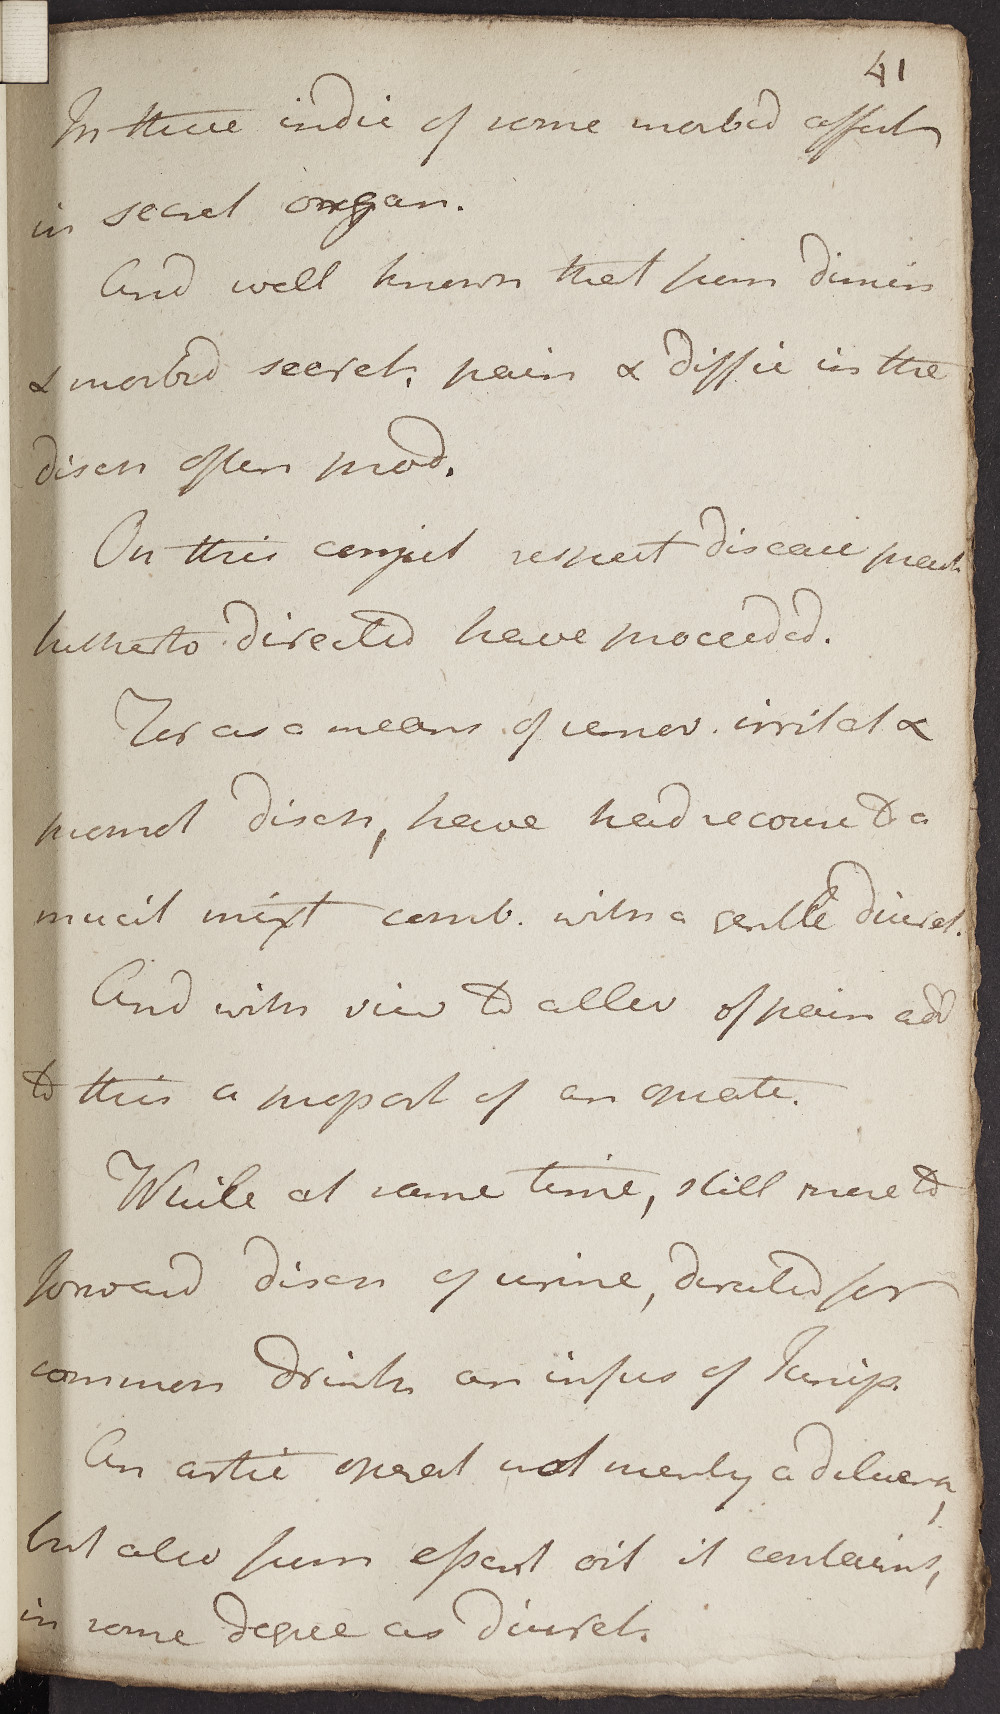 41
In these indic of some morbid affect
in secret organ.
And well known that from dimin
& morbid secret. pain & diffic in the
disch often prod.
On this conject respect disease pract
hitherto directed have proceeded.
For as a means of remov. irritat &
promot disch, have had recourse to a
mucil mixt comb. with a gentle diuret.
And with view to allev of pain add
to this a proport of an opiate.
While at same time, still more to
forward disch of urine, directed for
common drink an infus of Junip.
An artic operat not merely a diluent,
but also from essent oil it contains,
in some degree as diuret.